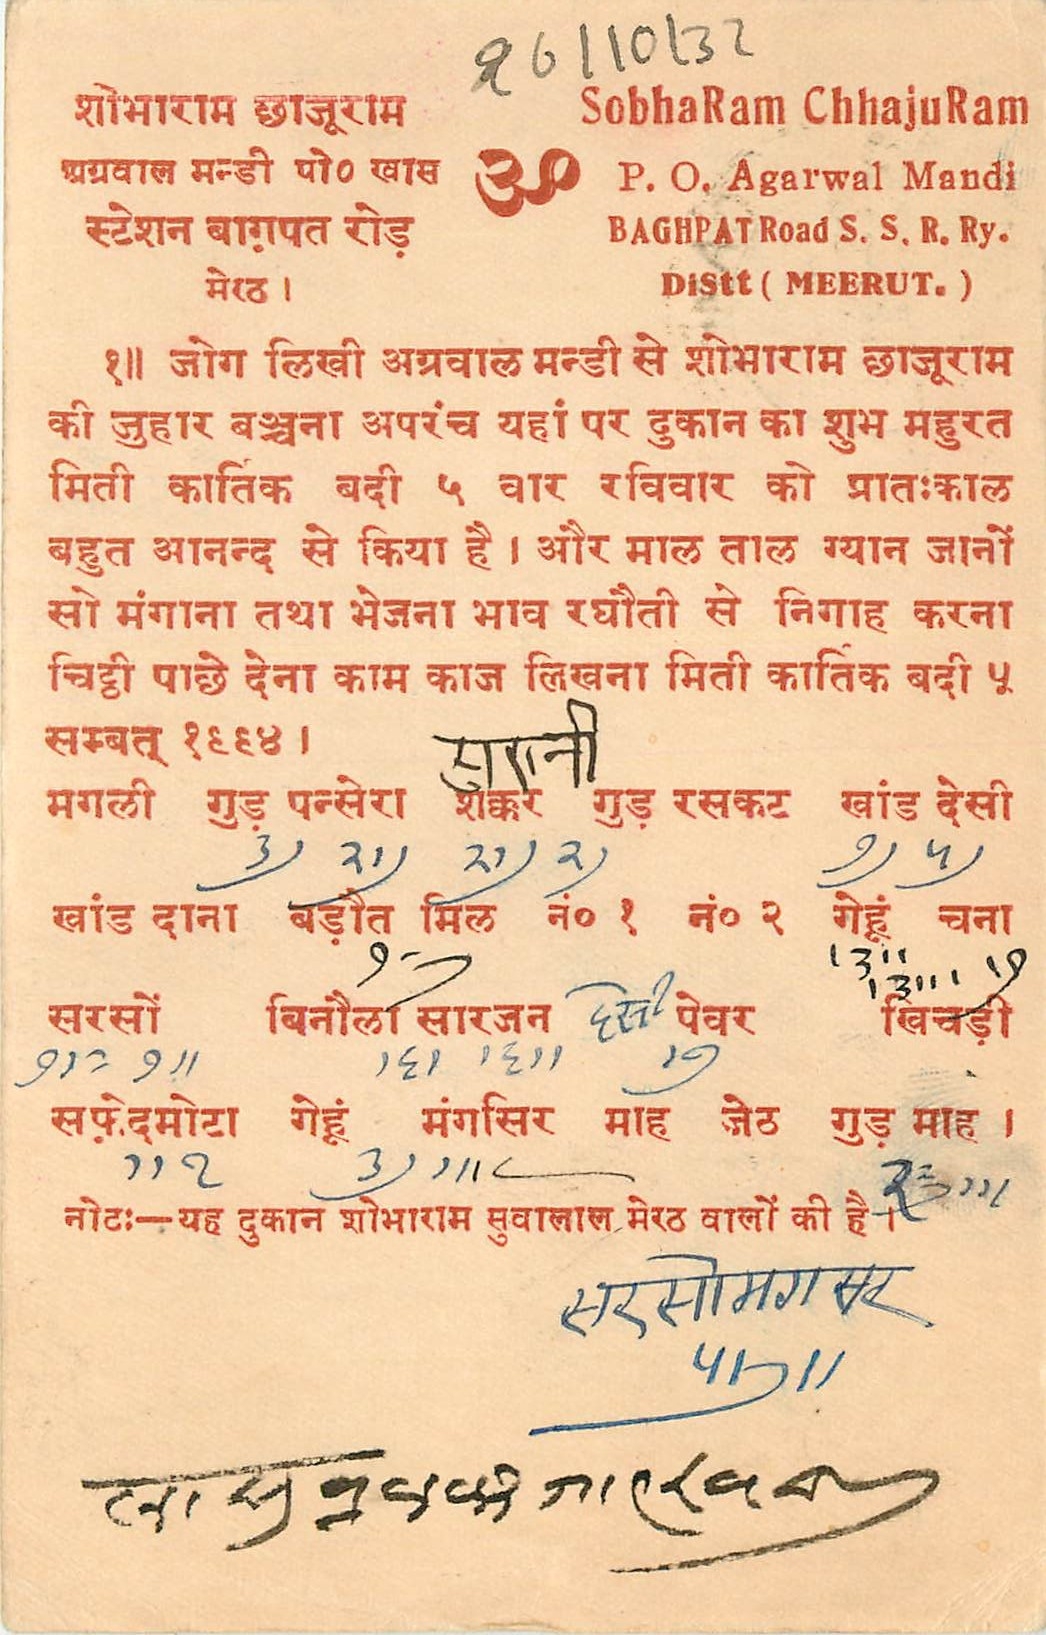 26/10/32
शोभाराम छाजूराम
अग्रवाल मन्डी पो० खास
स्टेशन बाग़पत रोड़
मेरठ ।
ॐ
SobhaRam ChhajuRam
P. O. Agarwal Mandi
BAGHPAT Road S. S. R. Ry.
DiStt ( MEERUT. )
१॥ जोग लिखी अग्रवाल मन्डी से शोभाराम छाजूराम
की जुहार बञ्चना अपरंच यहां पर दुकान का शुभ महुरत
मिती कार्तिक बदी ५ वार रविवार को प्रातःकाल
बहुत आनन्द से किया है । और माल ताल ग्यान जानों
सो मंगाना तथा भेजना भाव रघौती से निगाह करना
चिट्ठी पाछे देना काम काज लिखना मिती कार्तिक बदी ५
सम्बत् १९९४ ।
मगली गुड़ पन्सेरा शक्कर गुड़ रसकट खांड देसी
खांड दाना बड़ौत मिल नं० १ नं० २ गेहूं चना
सरसों बिनौला सारजन देसी पेवर खिचड़ी
सफ़ेदमोटा गेहूं मंगसिर माह जेठ गुड़ माह ।
नोटः—यह दुकान शोभाराम सुवालाल मेरठ वालों की है ।